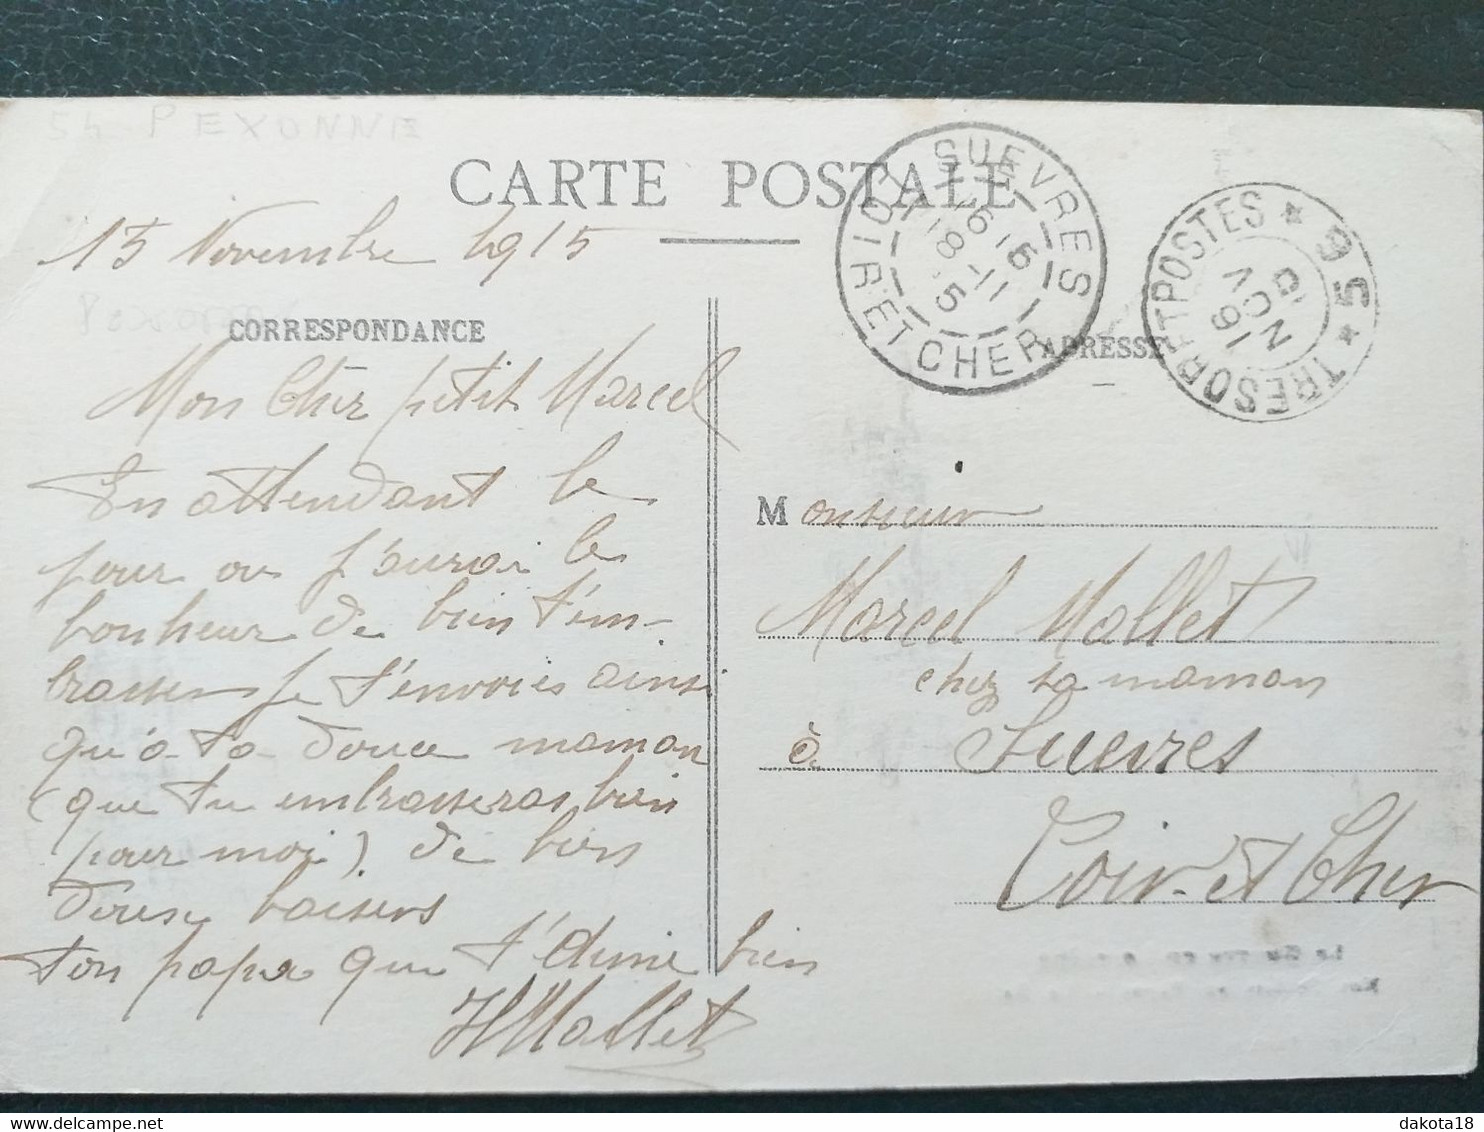 54 PEXONNE
CARTE POSTALE
15 Novembre 1915
CORRESPONDANCE
Mon Cher petit Marcel
En attendant le
jour ou j'aurai le
bonheur de bien t'em-
brasser je t'envoies ainsi
qu'a ta douce maman
(que tu embrasseras bien
pour moi) de biens
doux baisers
ton papa qui t'aime bien
H Mallet
SUEVRES
LOIR-ET-CHER
16-15
18-11
15
TRESOR ET POSTES * 95 *
16
NOV
15
ADRESSE
Monsieur
Marcel Mallet
chez sa maman
à Suevres
Loir-et-Cher
dakota18